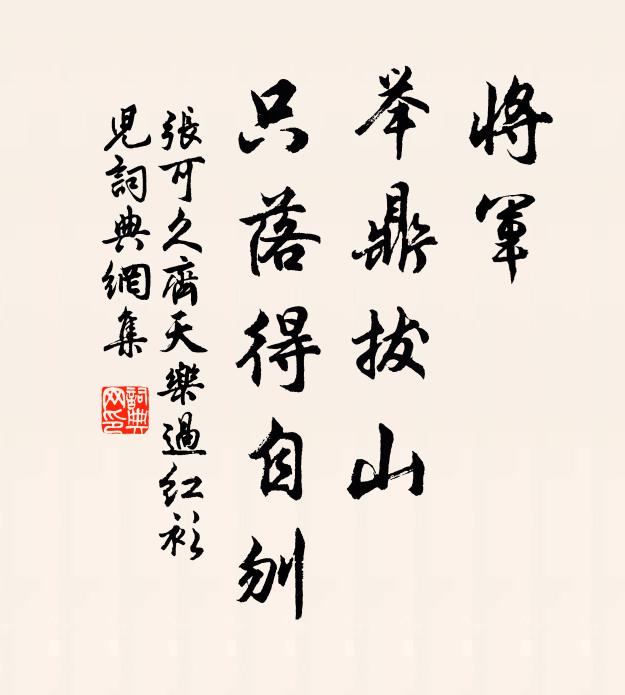 將軍
举鼎拔山
只落得自刎
張可久齊天樂過红衫
児詞典網集
詞典
网印